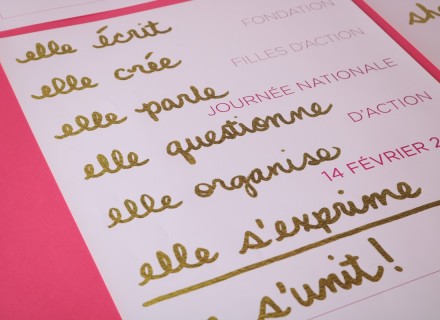 elle écrit
FONDATION
elle crée
FILLES D'ACTION
elle parle
JOURNÉE NATIONALE
elle questionne
D'ACTION
elle organise
14 FÉVRIER
elle s'exprime
s'unit!